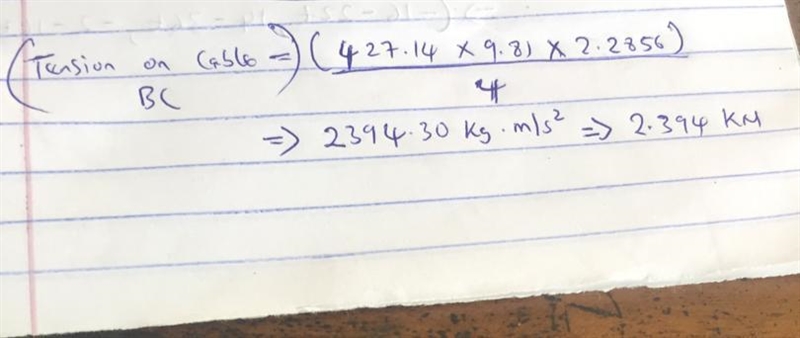 (Tension on Cable =) (427.14 × 9.81 × 2.2856)
BC 4
=> 2394.30 kg.m/s² => 2.394 KN